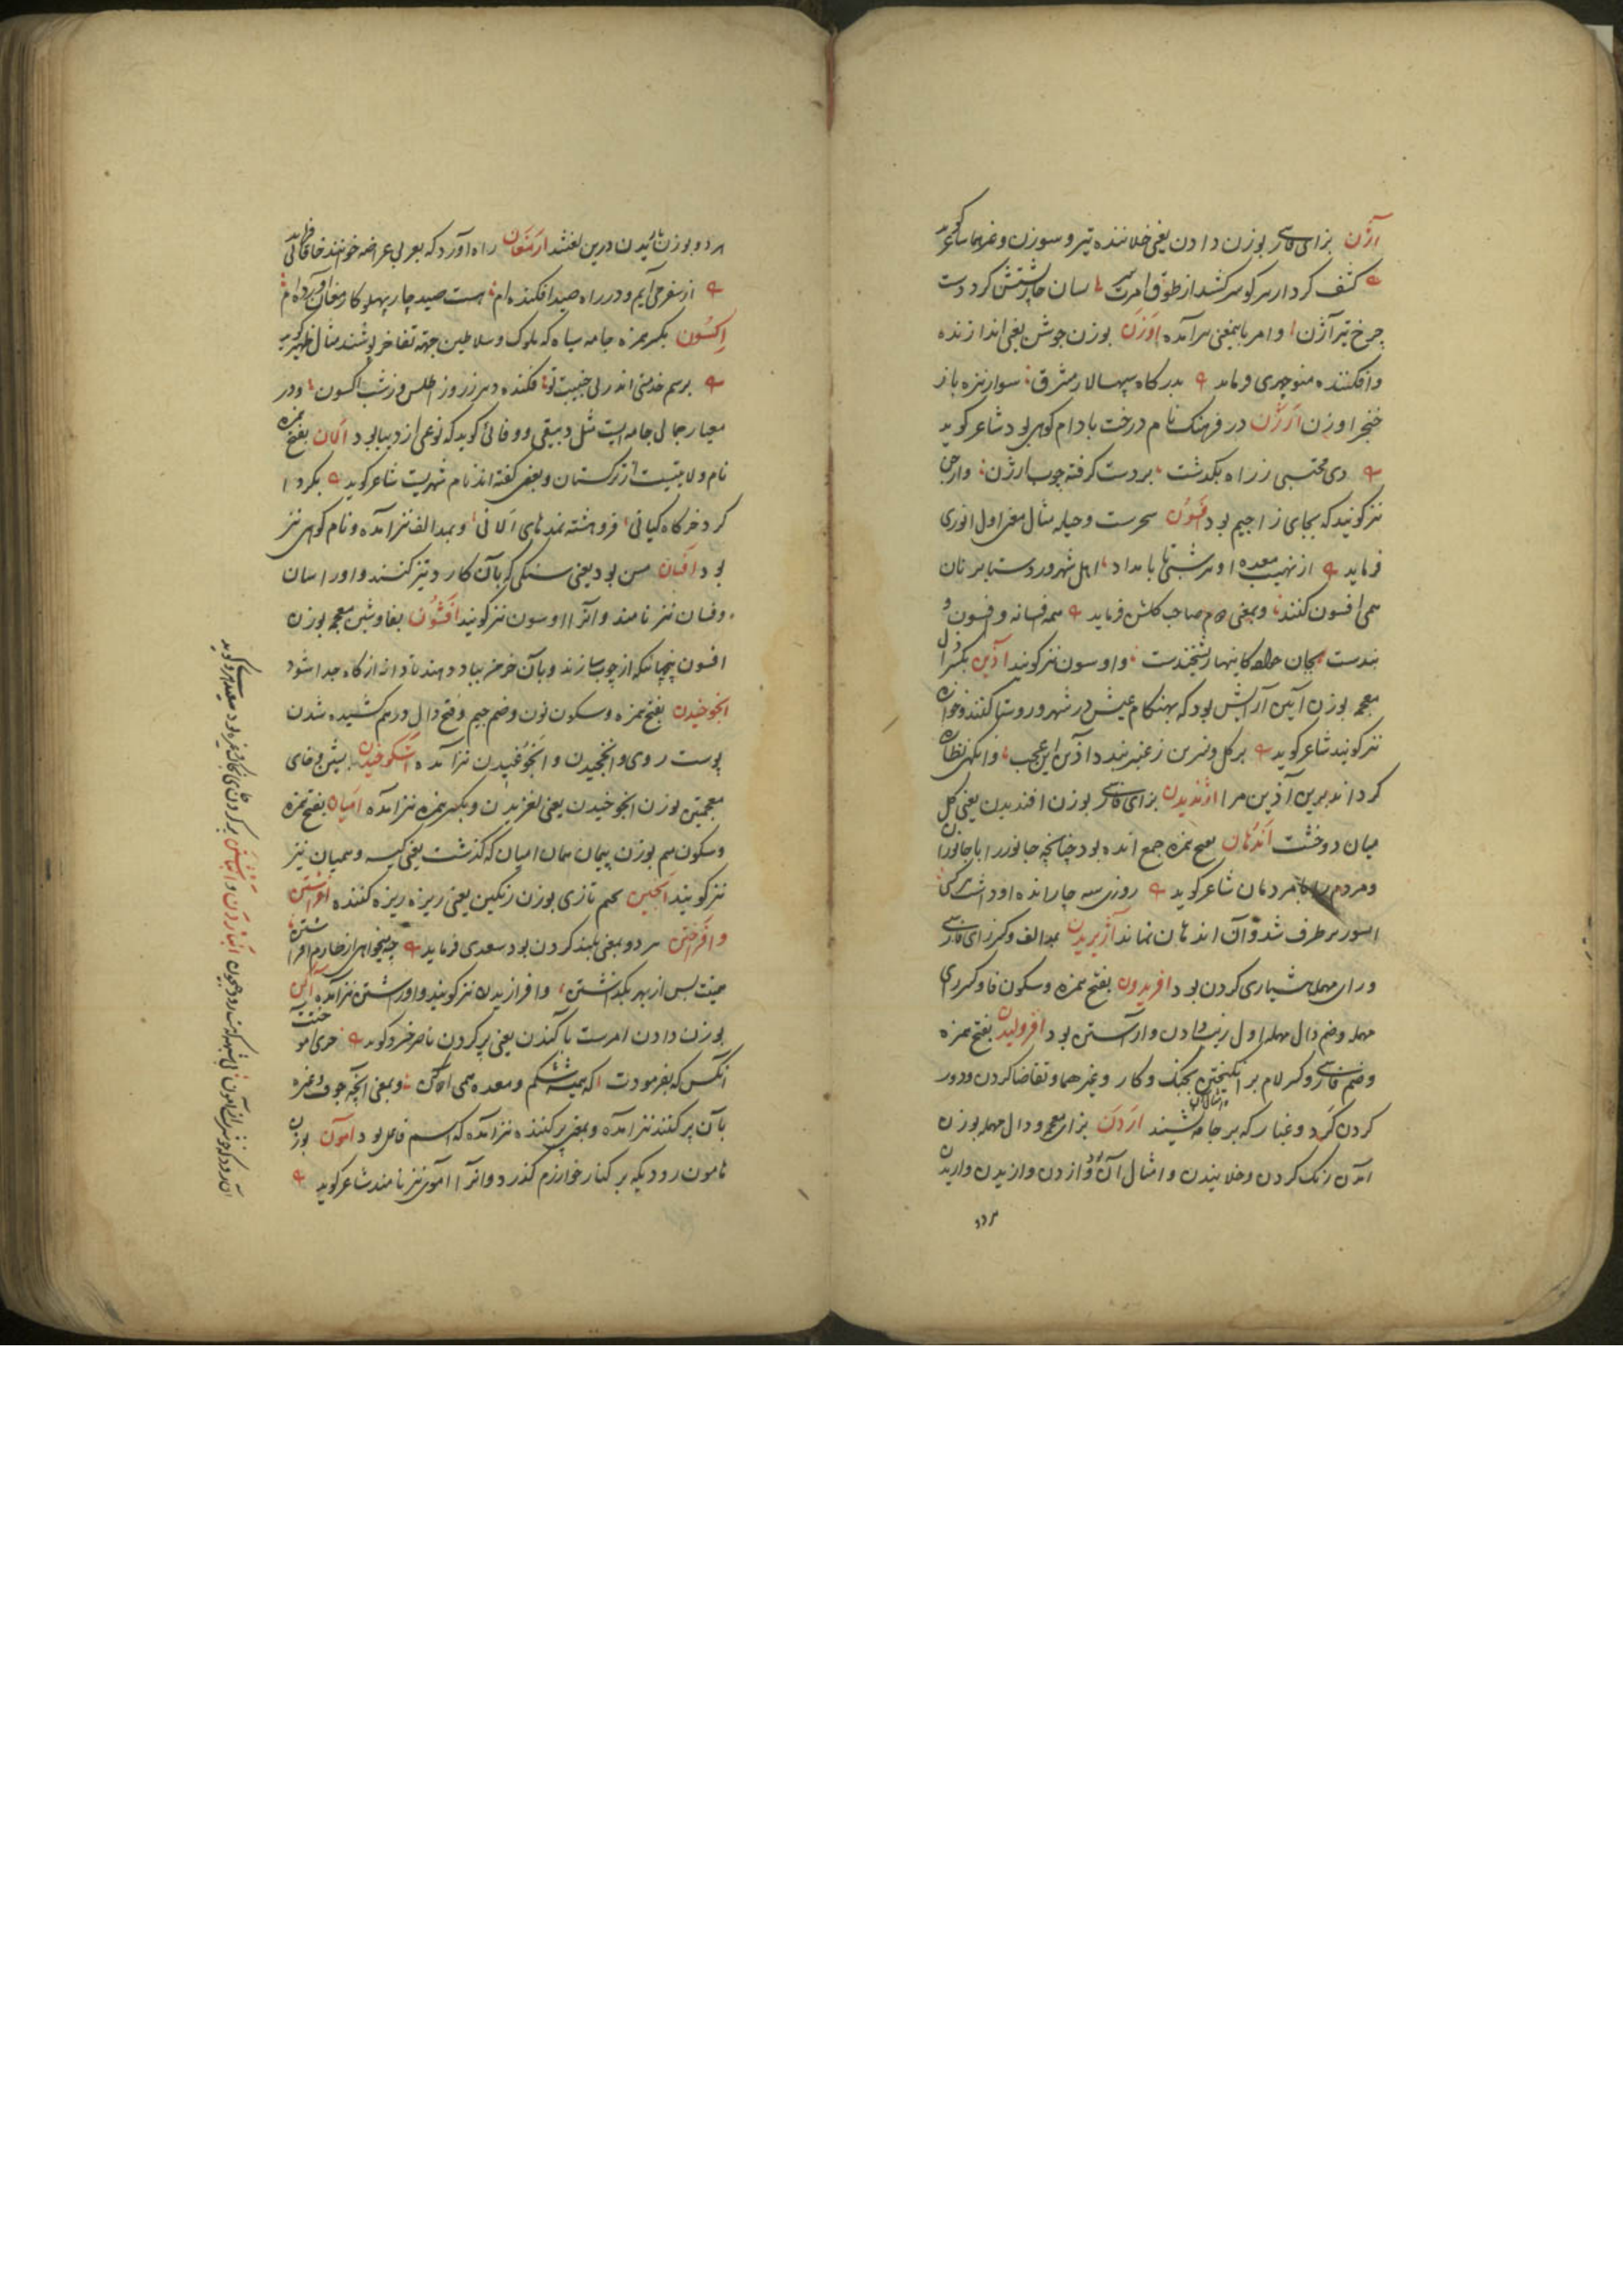 آژن بزای فارسی بوزن دادن یعنی خلاننده تیر و سوزن و غیرهما شاعر گوید
کشف کردار سر کو سرکشد از طوق امرت بسان خارپشتش کرد دست
چرخ تیرآژن و امر باینمعنی هم آمده اوژن بوزن جوشن یعنی اندازنده
و افکننده منوچهری فرماید بدرگاه سپهسالار مشرق سوار نیزه باز
خنجر اوژن ارژن در فرهنگ نام درخت بادام کوهی بود شاعر گوید
دی محتسبی ز راه بگذشت بر دست گرفته چوب ارژن و ارجن
نیز گویند که بجای زا جیم بود فسون سحرست و حیله مثال معنی اول انوری
فرماید از نهیب معده او هر شبی تا بامداد اهل شهر و روستا بر نان
همی افسون کنند و بمعنی هم صاحب گلشن فرماید همه افسانه و فسون و
بندست بجان خواجه کاینها ریشخندست و اوسون نیز گویند آذین بکسر ذال
معجمه بوزن آیین آرایش بود که بهنگام عیش در شهر و روستا کنند و خوازه
نیز گویند شاعر گوید بر گل و نسرین ز عنبر بندد آذین این عجب وانگهی نظاره
کرداند برین آذین مرا اژندیدن بزای فارسی بوزن افندیدن یعنی گل
میان دو خشت اندهان بفتح همزه جمع انده بود چنانچه جانور را با جانوران
و مردم را با مردمان شاعر گوید روزی سه چار انده او داشت
آنسور برطرف شد و آن اندهان نماند آژیریدن بمد الف و کسر زای فارسی
و رای مهمله هشیاری کردن بود افریدون بفتح همزه و سکون فا و کسر رای
مهمله و ضم دال مهمله اول زیب دادن و آراستن بود افژولیدن بفتح همزه
و ضم فارسی و کسر لام برانگیختن بجنگ و کار و غیرهما و تقاضا کردن و دور
کردن گرد و غبار که بر جامه نشیند و امثال آن ازدن بزای معجمه و دال مهمله بوزن
آمدن رنگ کردن و خلانیدن و امثال آن بود و آژدن و ازیدن و ازیدن
هر دو
هر دو بوزن نائیدن درین لغتند ارمغان راه آورد که بعربی عراضه خوانند خاقانی فرماید
از سفر می‌آیم و در راه صید افکنده‌ام هست صید چارپهلو کارمغان آورده‌ام
اکسون بکسر همزه جامه سیاه که ملوک و سلاطین جهته تفاخر پوشند مثال ظهیر گوید
برسم خدمتی اندر پی جنیبت تو فکنده دهر ز روز اطلس و ز شب اکسون و در
معیار جمالی جامه‌ایست مثل دبیقی و وفائی گوید که نوعی از دیبا بود الان بفتح همزه
نام ولایتیست از ترکستان و بعضی گفته‌اند نام شهریست شاعر گوید بگردا
گرد خرگاه کیانی فروهشته نمدهای الانی و بمد الف نیز آمده و نام کوهی نیز
بود افسان مسن بود یعنی سنگی که بآن کارد تیز کنند و او را سان
و فسان نیز نامند و آنرا اوسون نیز گویند افشون بفا و شین معجمه بوزن
افسون پنچانیکه از چوب سازند و بآن خرمن بباد دهند تا دانه از کاه جدا شود
انجوخیدن بفتح همزه و سکون نون و ضم جیم و فتح دال درهم کشیده شدن
پوست روی و انجخیدن و انجوغیدن نیز آمده اشکوخیدن بشین و خای
معجمتین بوزن انجوخیدن یعنی لغزیدن و بکسر همزه نیز آمده امیان بفتح همزه
و سکون میم بوزن پیمان همان امیان که گذشت یعنی کیسه و همیان نیز
نیز گویند انجین بجیم تازی بوزن رنگین یعنی ریزه ریزه کننده افراشتن
و افراختن هر دو بمعنی بلند کردن بود سعدی فرماید چه میخواهی از طارم افراشتن
همینت بس از بهر بگذاشتن و افرازیدن نیز گویند و اوراشتن نیز آمده آگن
بوزن دادن امرست بآکندن یعنی پر کردن ناصر خسرو گوید خری آموختت
آنکس که بفرمودت که همیشه شکم و معده همی آگن و بمعنی آنچه جوف و غیره
بآن پر کنند نیز آمده و بمعنی پر کننده نیز آمده که اسم فاعل بود آمون بوزن
هامون رودیکه بر کنار خوارزم گذرد و آنرا آموی نیز نامند شاعر گوید